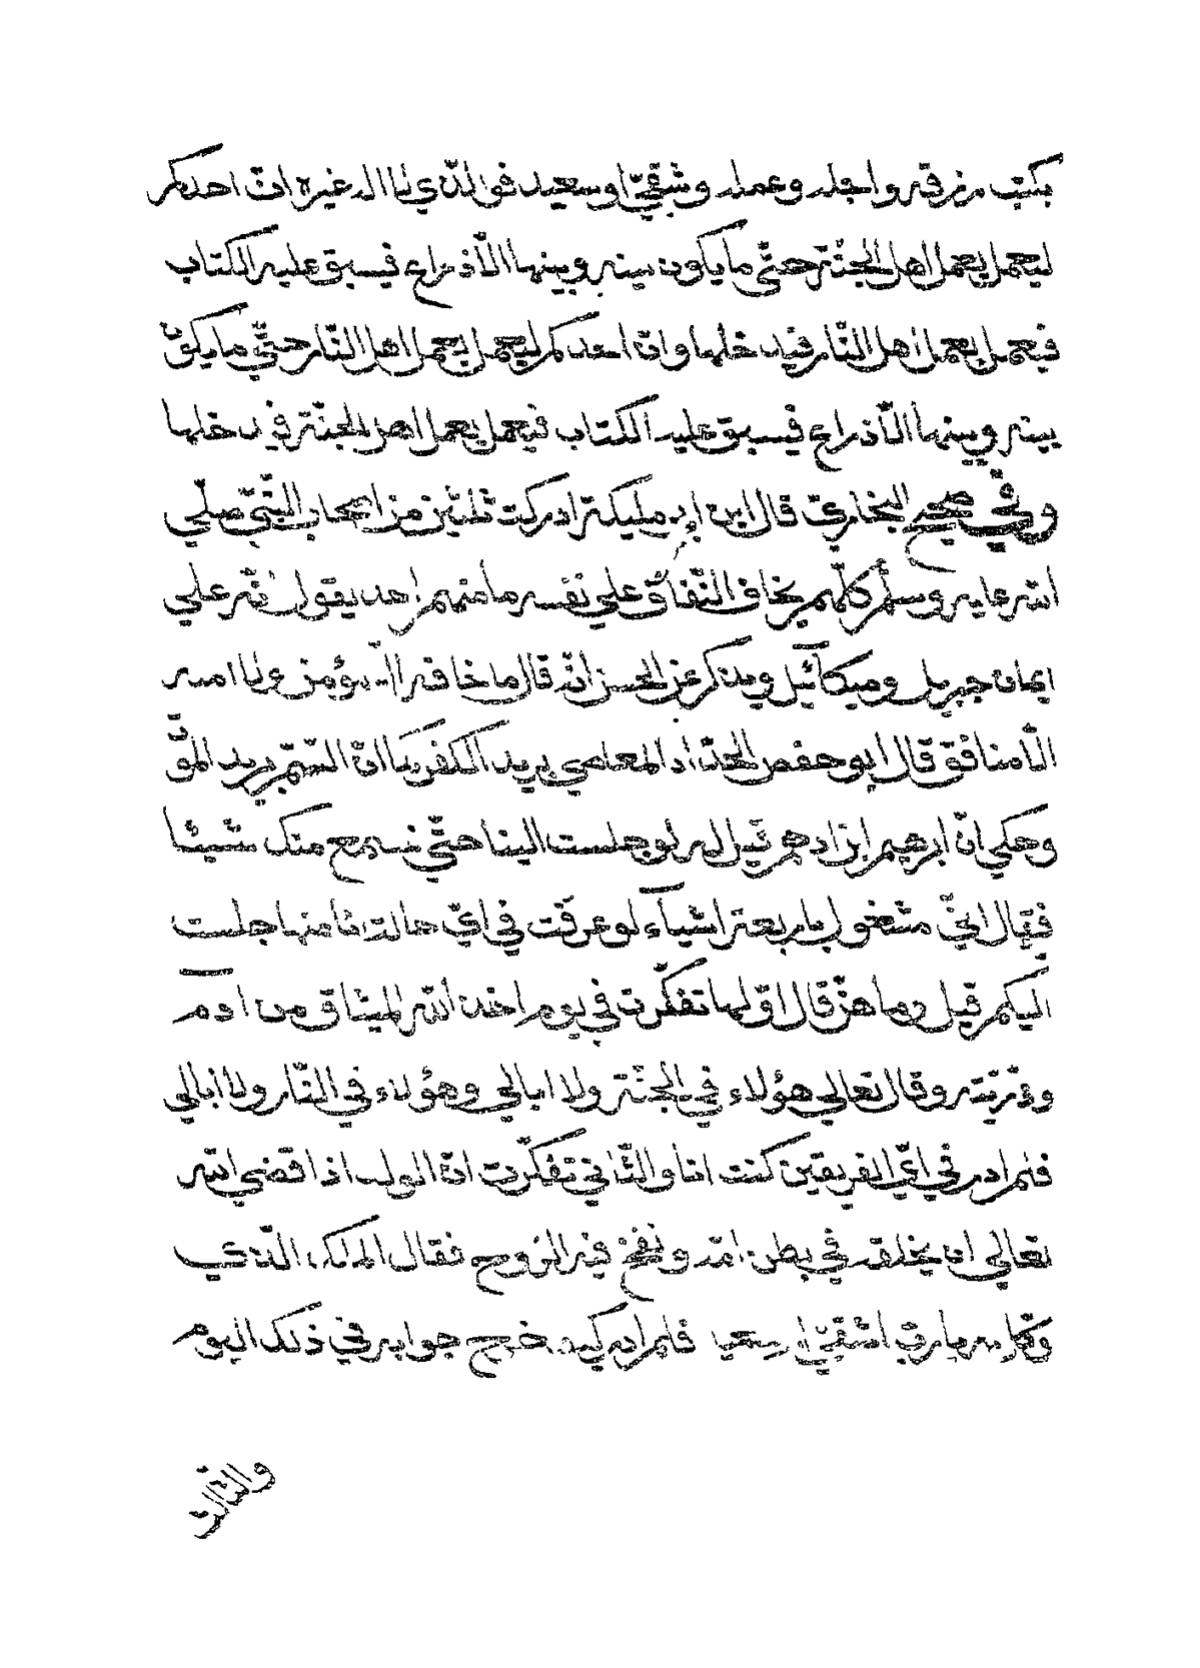 بكتب رزقه واجله وعمله وشقيّ او سعيد فوالذي لا اله غيره انّ احدكم
ليعمل بعمل اهل الجنّة حتّى ما يكون بينه وبينها الّا ذراع فيسبق عليه الكتاب
فيعمل بعمل اهل النّار فيدخلها وانّ احدكم ليعمل بعمل اهل النّار حتّي ما يكون
بينه وبينها الّا ذراع فيسبق عليه الكتاب فيعمل بعمل اهل الجنّة فيدخلها
وفي صحيح البخاريّ قال ابن ابي مليكة ادركت ثلثين من اصحاب النّبيّ صلّي
الله عليه وسلّم كلّهم يخاف النّفاق علي نفسه ما منهم احد يقول انّه علي
ايمان جبريل وميكآئيل ويذكر عن الحسن انّه قال ما خافه الّا مؤمن ولا امنه
الّا منافق قال ابو حفص الحدّاد المعاصي بريد الكفر كما انّ السّمّ بريد الموت
وحكي انّ ابرهيم ابن ادهم قيل له لو جلست الينا حتّي نسمع منك شيئا
فقال انّي مشغول باربعة اشيآء لو عرفت في ايّ حالة انا منها جلست
اليكم قيل وما هنّ قال اوّلها تفكّرت في يوم اخذ الله الميثاق من آدم
وذرّيّته وقال تعالي هؤلاء في الجنّة ولا ابالي وهؤلاء في النّار ولا ابالي
فلم ادر في ايّ الفريقين كنت انا والثّاني تفكّرت انّ الولد اذا قضي الله
تعالي ان يخلقه في بطن امّه ونفخ فيه الرّوح فقال الملك الّذي
وكّل به يا ربّ اشقيّ ام سعيد فلم ادر كيف خرج جوابه في ذلك اليوم
والثّالث